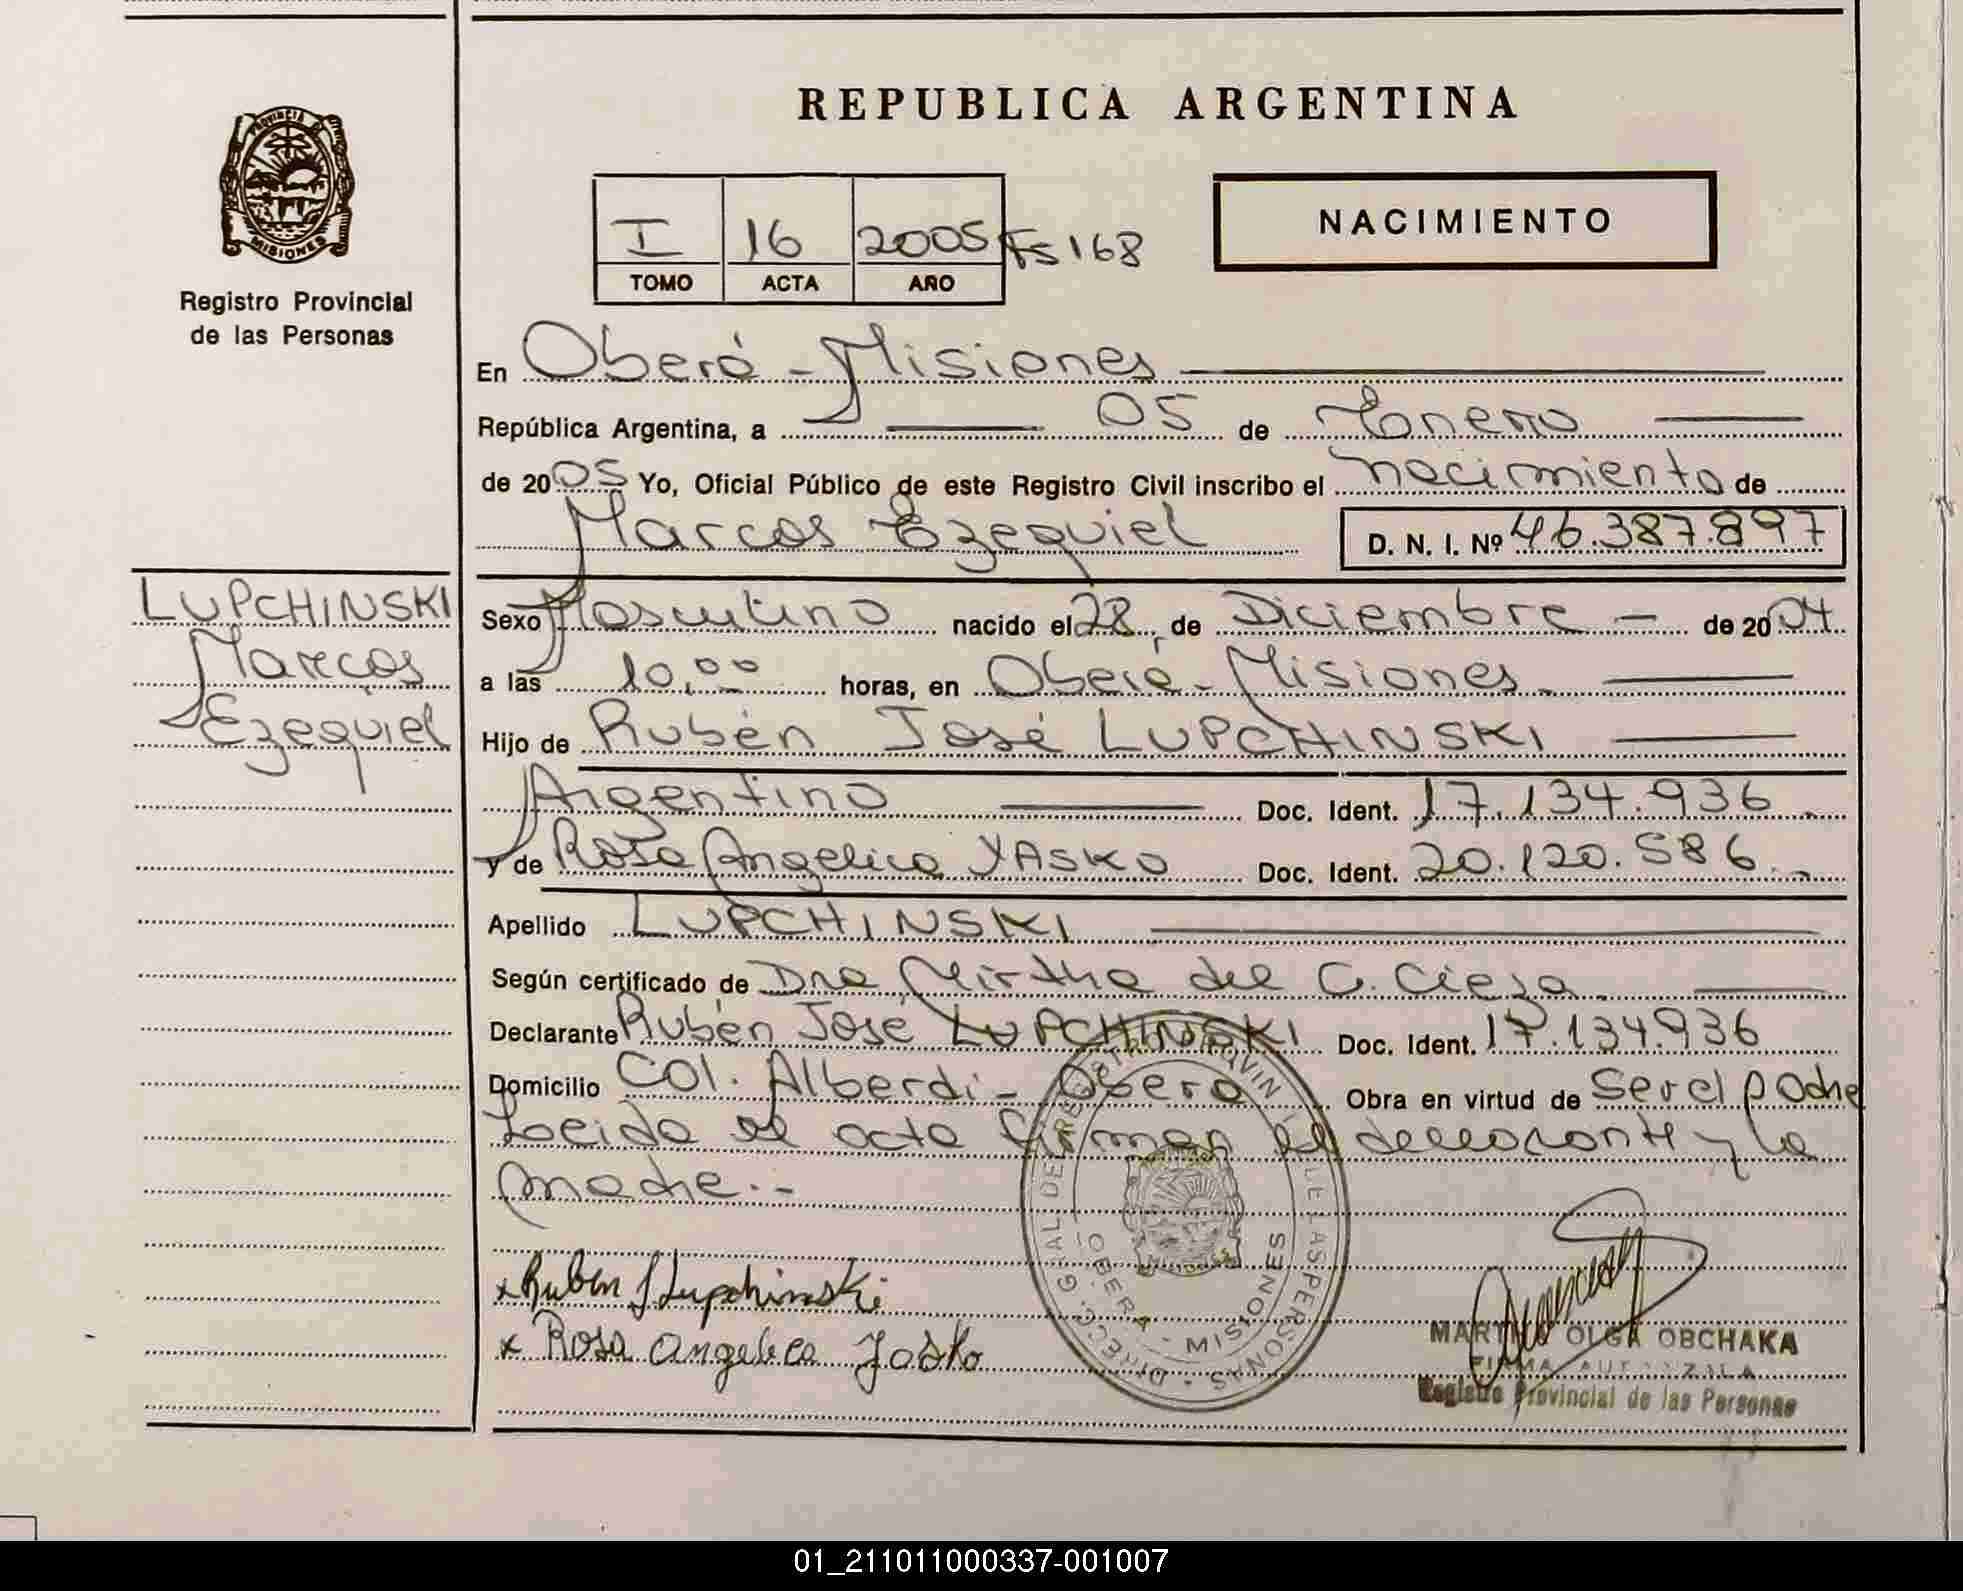 REPUBLICA ARGENTINA
PROVINCIA D
MISIONES
Registro Provincial
de las Personas
I 16 2005 Fs 168
TOMO ACTA AÑO
NACIMIENTO
En Oberá - Misiones
República Argentina, a 05 de Enero
de 2005 Yo, Oficial Público de este Registro Civil inscribo el nacimiento de
Marcos Ezequiel D. N. I. Nº 46.387.897
LUPCHINSKI
Marcos
Ezequiel
Sexo Masculino nacido el 28 de Diciembre - de 2004
a las 10,00 horas, en Oberá - Misiones.
Hijo de Rubén José LUPCHINSKI
Argentino Doc. Ident. 17.134.936.
y de Rosa Angelica YASKO Doc. Ident. 20.120.586.
Apellido LUPCHINSKI
Según certificado de Dra Mirtha del C. Cieza
Declarante Rubén José LUPCHINSKI Doc. Ident. 17.134.936
Domicilio Col. Alberdi - Oberá Obra en virtud de ser el padre
Leida el acta firman el declarante y la
madre.-
x Ruben J Lupchinski
x Rosa Angelica Yasko
DIRECC. GRAL DE REGISTRO PROVIN DE LAS PERSONAS
OBERA - MISIONES
OLGA OBCHAKA
Registro Provincial de las Personas
01_211011000337-001007